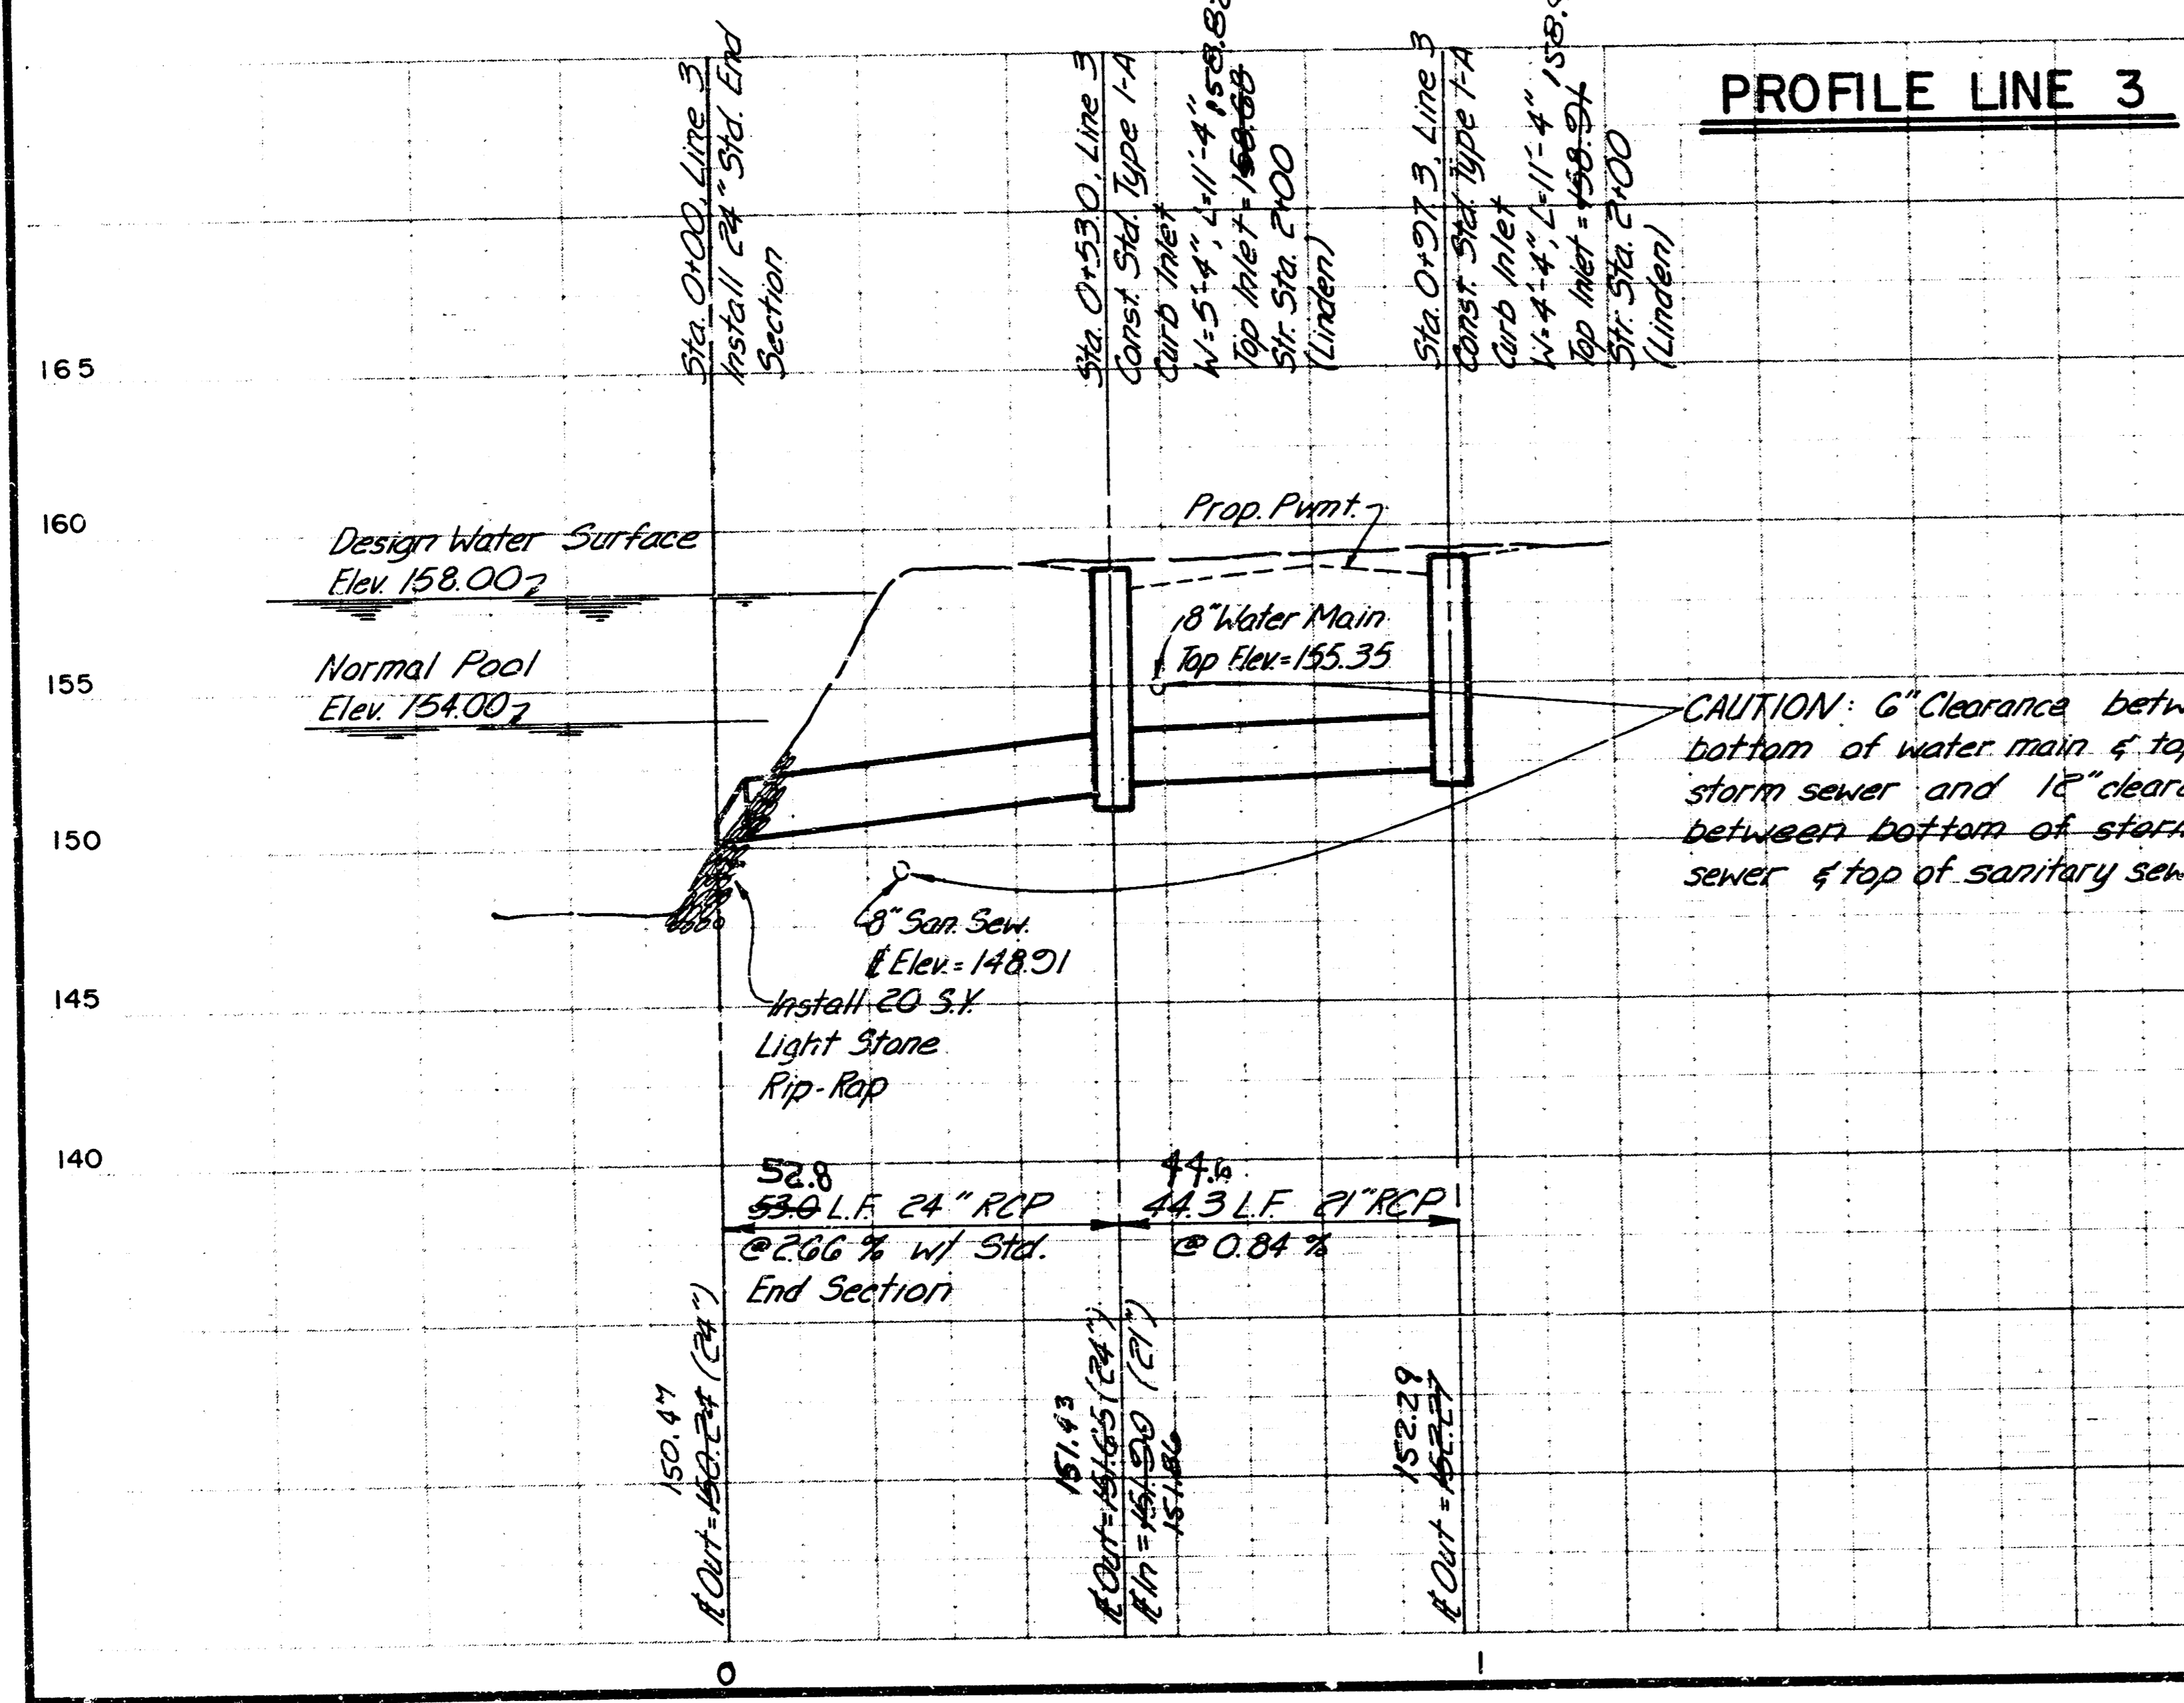 PROFILE LINE 3
Sta. 0+00, Line 3
Install 24" Std. End
Section
Sta. 0+53.0, Line 3
Const. Std. Type 1-A
Curb Inlet
W=5'-4", L=11'-4"
158.8
Top Inlet = 158.68
Str. Sta. 2+00
(Linden)
Sta. 0+97.3, Line 3
Const. Std. Type 1-A
Curb Inlet
W=4'-4", L=11'-4"
158.
Top Inlet = 158.91
Str. Sta. 2+00
(Linden)
165
160
155
150
145
140
Design Water Surface
Elev. 158.00
Normal Pool
Elev. 154.00
Prop. Pvmt.
8" Water Main
Top Elev.=155.35
CAUTION: 6" Clearance
bottom of water main &
storm sewer and 12"
between bottom of
sewer & top of sanitary
8" San. Sew.
℄ Elev.=148.91
Install 20 S.Y.
Light Stone
Rip-Rap
52.8
53.0 L.F. 24" RCP
@ 2.66 % w/ Std.
End Section
44.6
44.3 L.F. 21" RCP
@ 0.84 %
150.47
Out=150.24 (24")
151.43
Out=151.65 (24")
In=151.90 (21")
151.86
152.29
Out=152.27
0
1